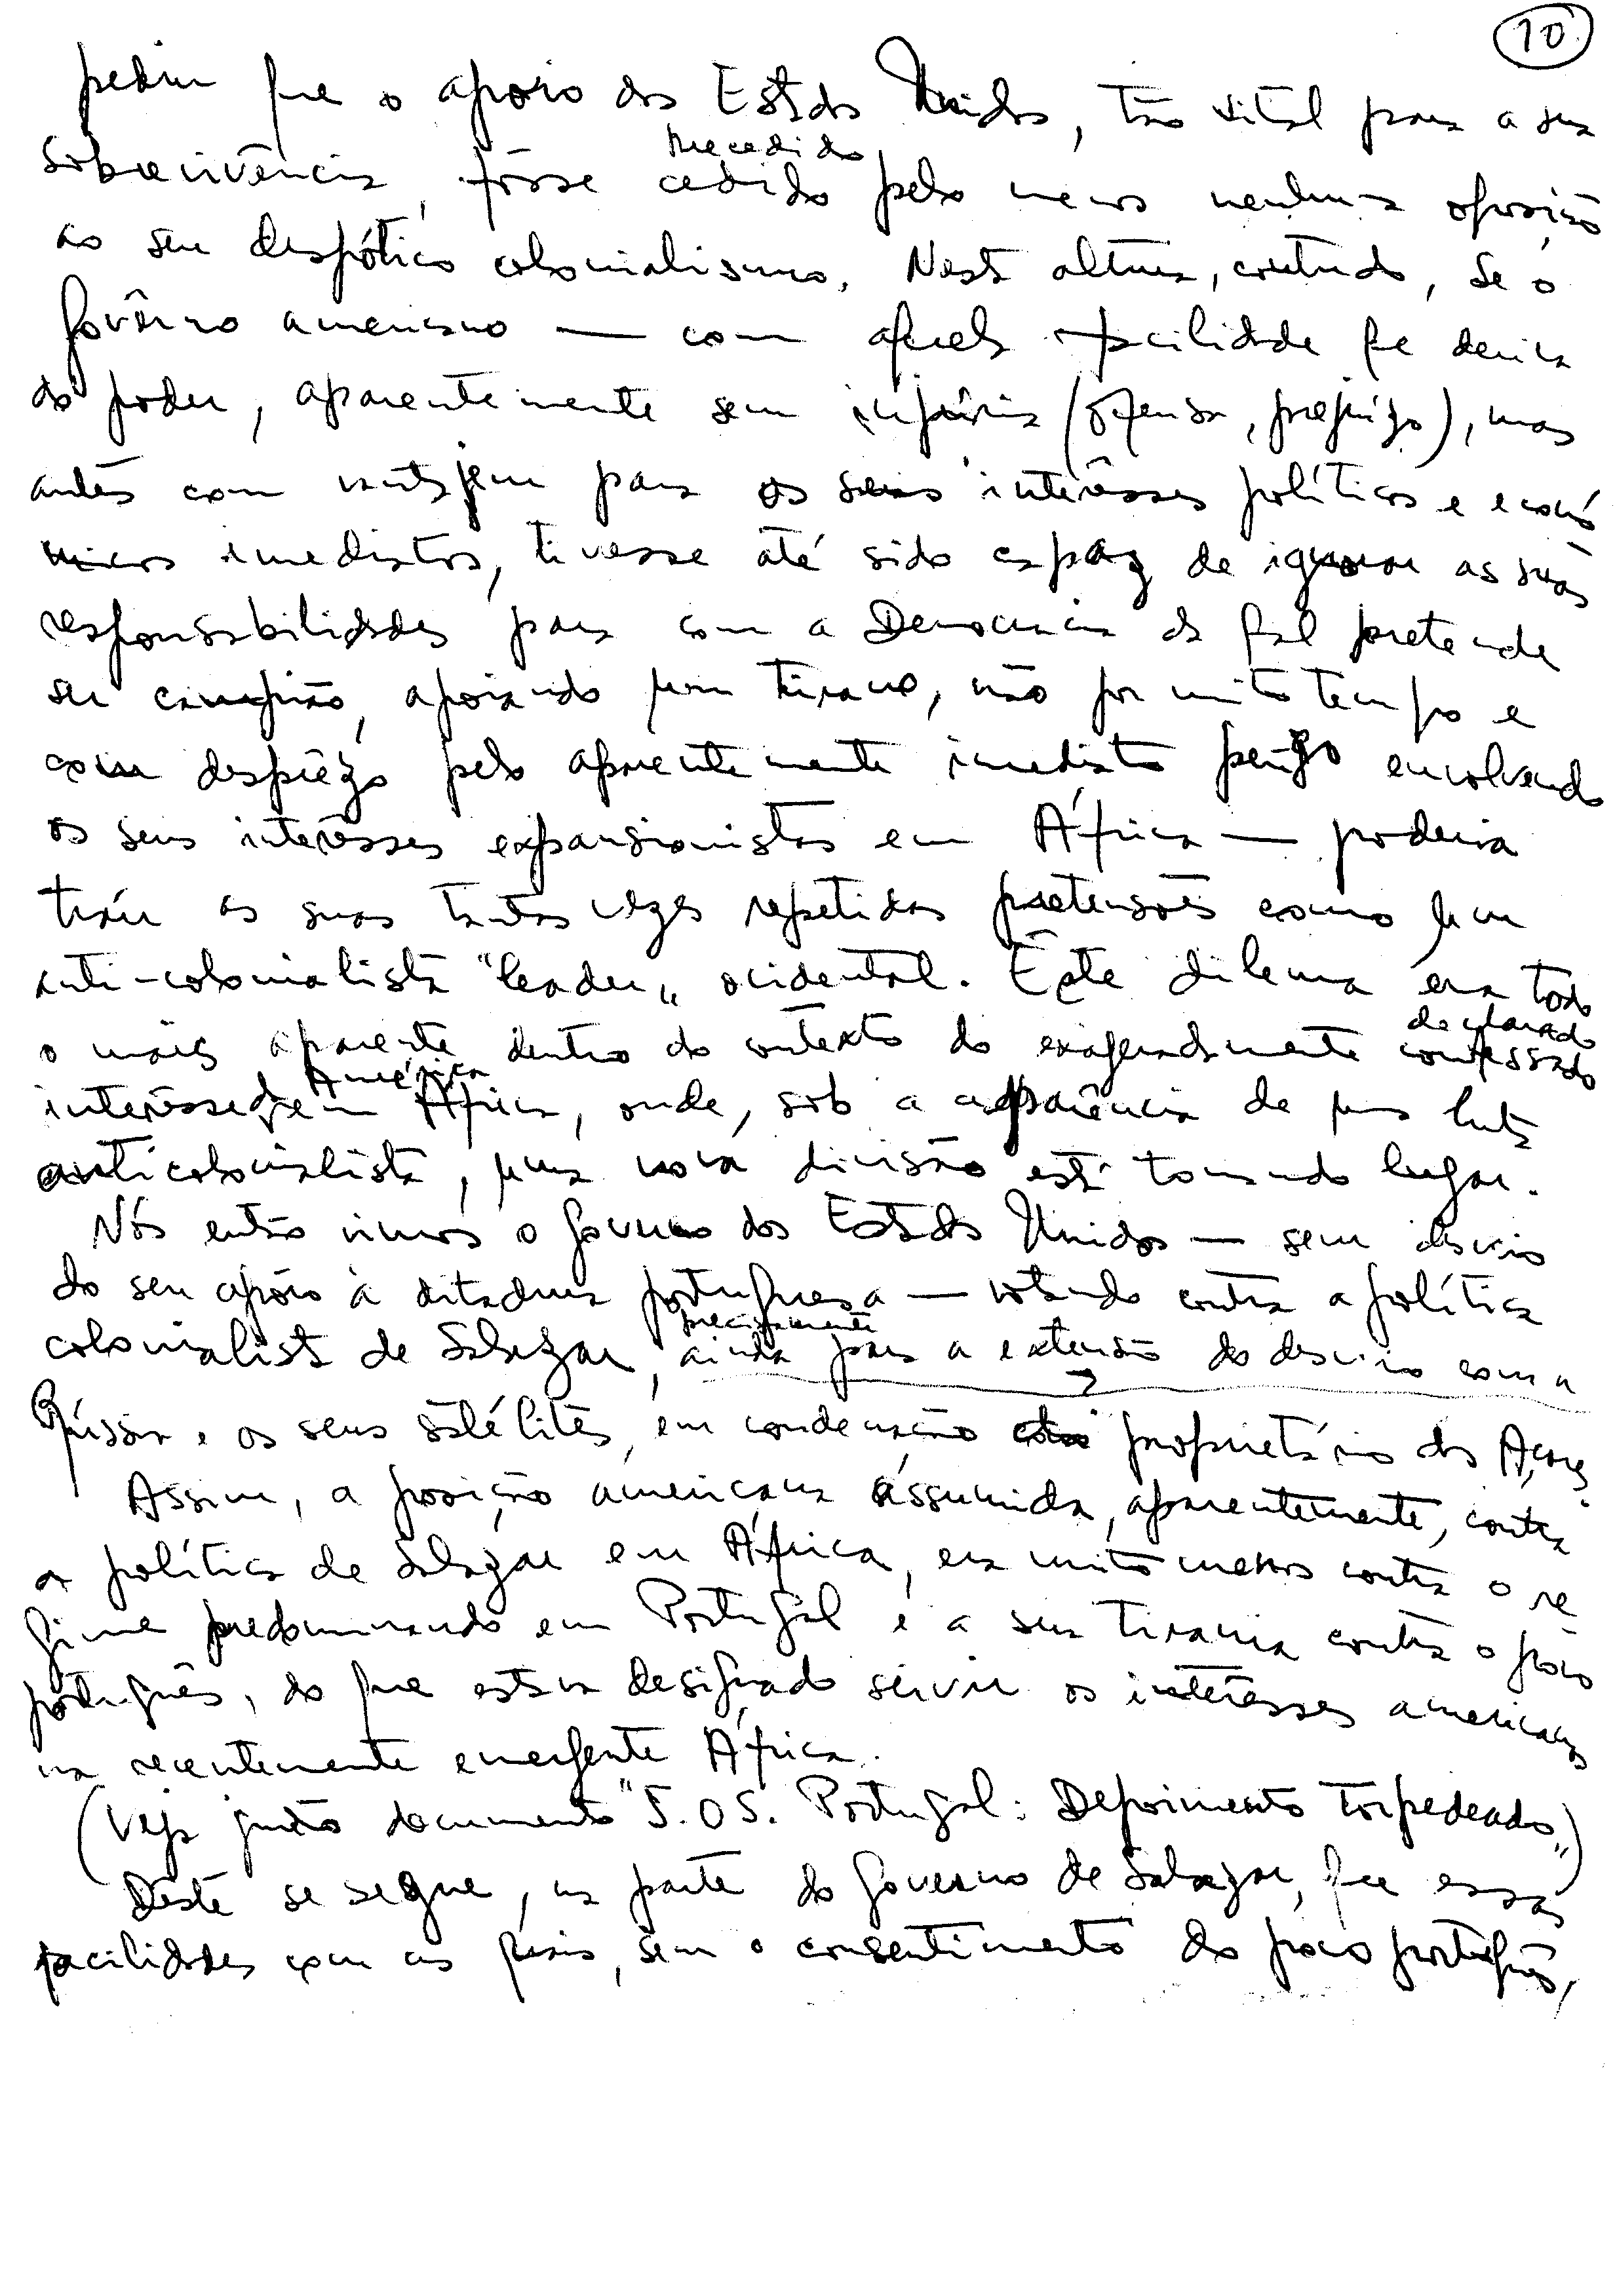 10
pedir que o apoio dos Estados Unidos, tão vital para a sua
sobrevivência, fôsse cedido pelo menos nenhuma oposição
ao seu despótico colonialismo. Nesta altura, contudo, se o
Govêrno americano — com aquela facilidade que deriva
do poder, aparentemente sem injúria (ofensa, prejuízo), mas
antes com vantajem para os seus interêsses políticos e econó
micos imediatos, tivesse até sido capaz de ignorar as suas
responsabilidades para com a Democracia da qual pretende
ser campião, apoiando um tirano, não por muito tempo e
com desprêzo pelo aparentemente imediato perigo envolvendo
os seus interêsses expansionistas em África — poderia
trair as suas tantas vezes repetidas pretensões como um
anti-colonialista "leader" ocidental. Êste dilema era todo
declarado
o mais aparente dentro do contexto do exageradamente confessado
América
interêsse em África, onde, sob a aparência de uma luta
anticolonialista, uma nova divisão está tomando lugar.
Nós então vimos o governo dos Estados Unidos — sem desvio
do seu apôio à ditadura portuguesa — votando contra a política
precisamente
colonialista de Salazar, ainda para a extensão do desvio com a
Rússia e os seus satélites, em condenação proprietário dos Açores.
Assim, a posição americana assumida, aparentemente, contra
a política de Salazar em África, era muito menos contra o re
gime predominando em Portugal e a sua tirania contra o povo
português, do que estava designado servir os interêsses americanos
na recentemente emergente África.
(Veja junto documento "S.O.S. Portugal: Depoimento Torpedeado")
Dêste se segue, na parte do governo de Salazar, que essas
facilidades com as quais, sem o consentimento do povo português,